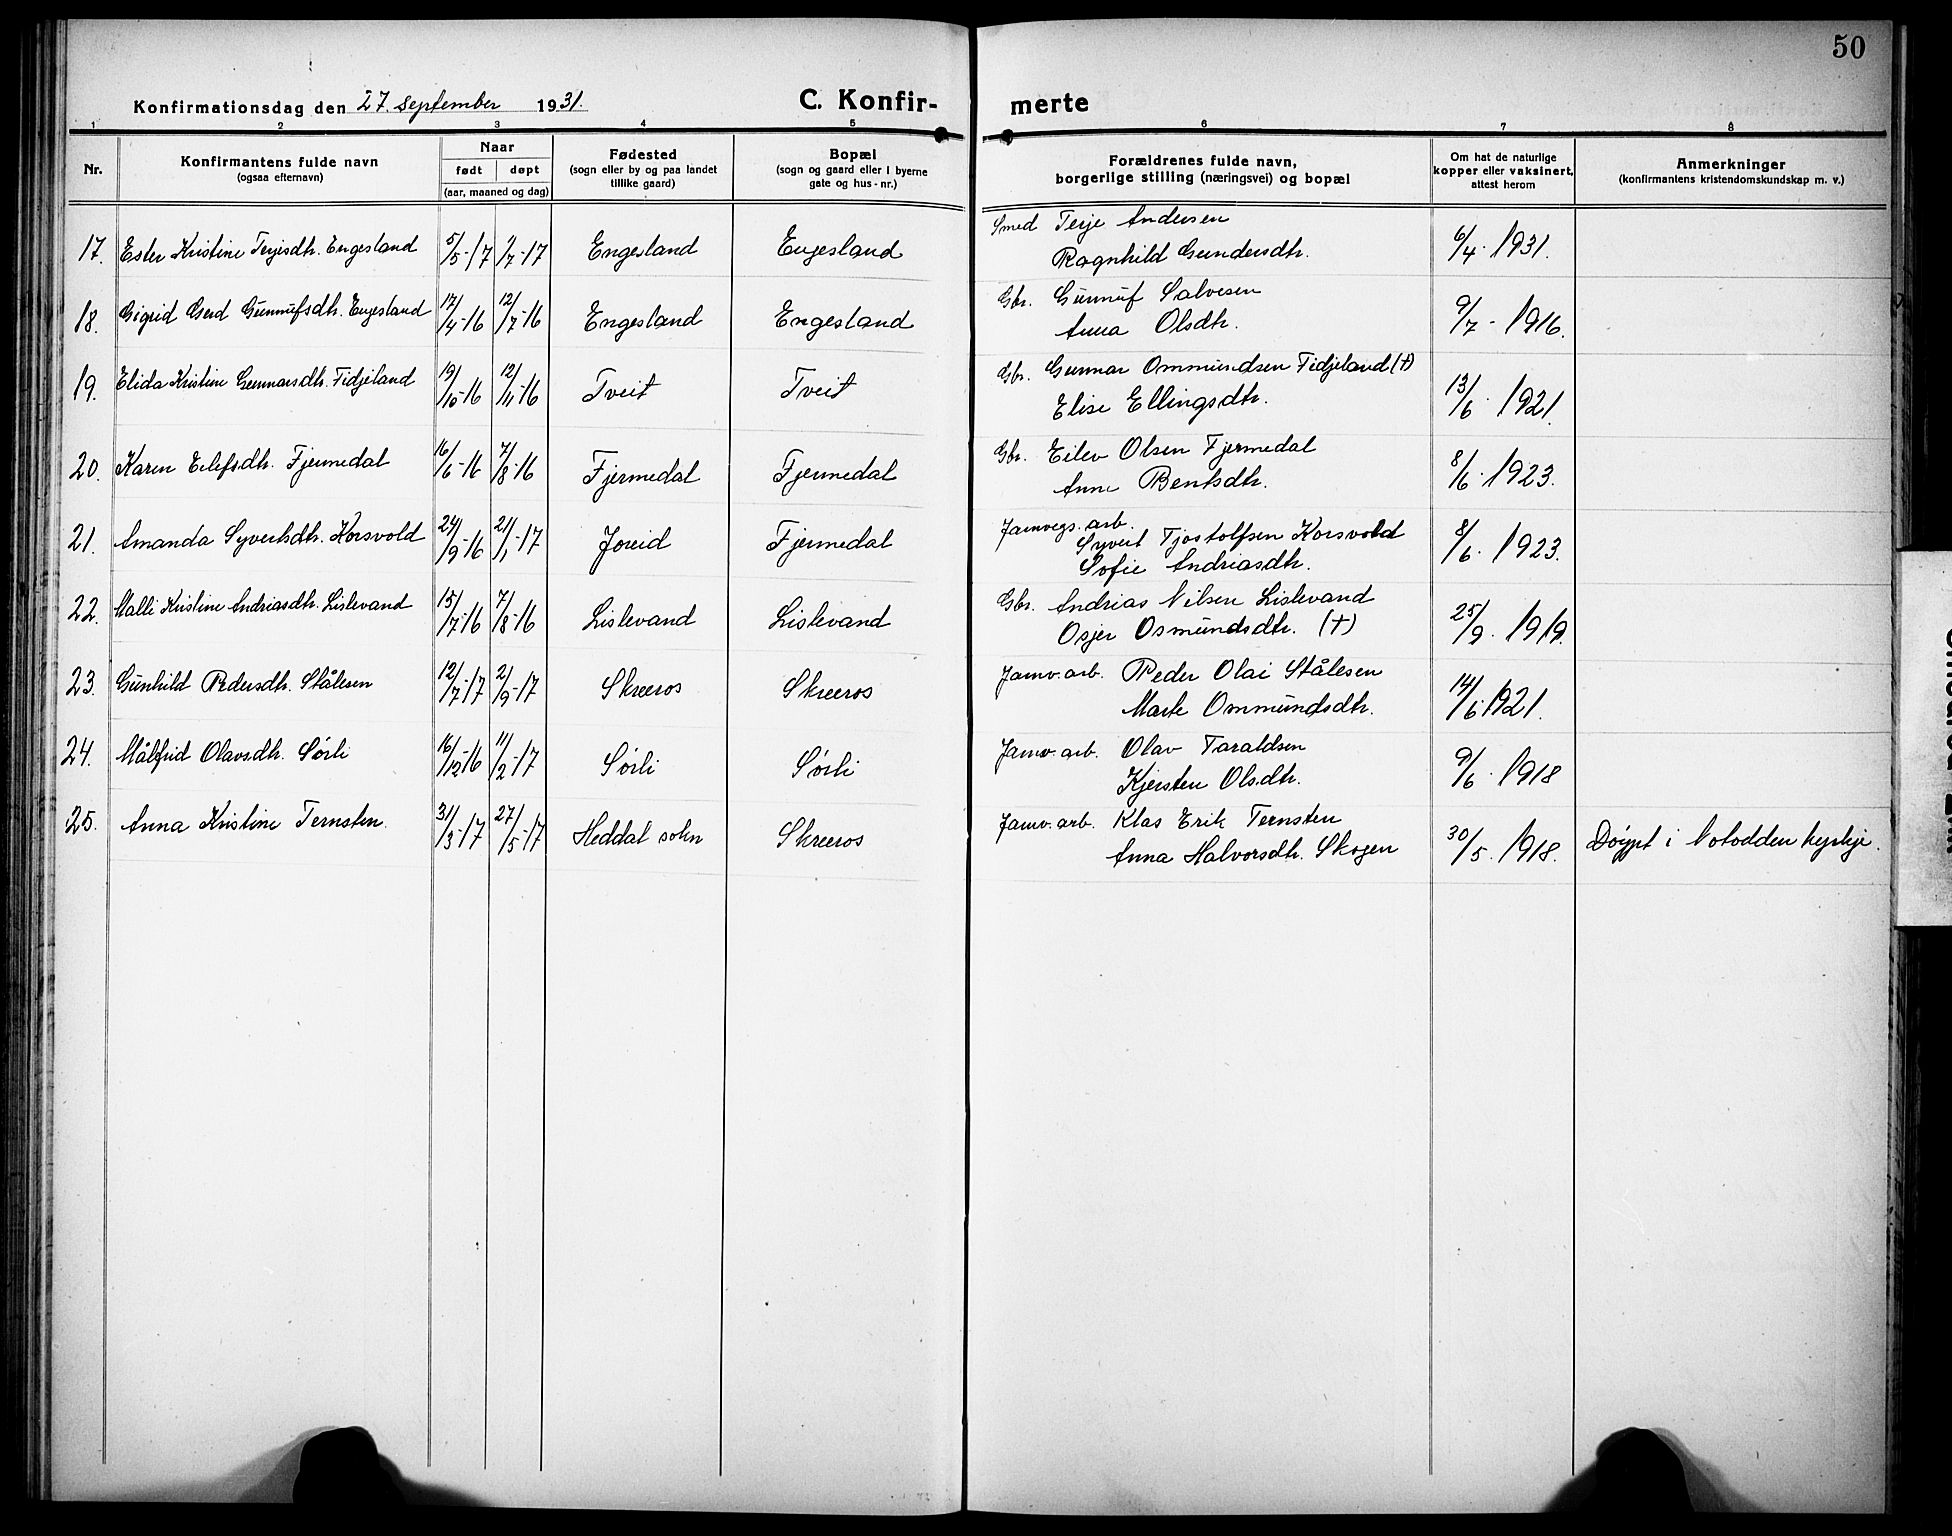 50
Konfirmationsdag den 27. september 1931.
C. Konfir-
merte
1 2 3 4 5 6 7 8
Nr.
Konfirmantens fulde navn
(ogsaa efternavn)
Naar
født døpt
(aar, maaned og dag)
Fødested
(sogn eller by og paa landet
tillike gaard)
Bopæl
(sogn og gaard eller i byerne
gate og hus-nr.)
Forældrenes fulde navn,
borgerlige stilling (næringsvei) og bopæl
Om hat de naturlige
kopper eller vaksinert,
attest herom
Anmerkninger
(konfirmantens kristendomskundskap m. v.)
17. Ester Kristine Terjesdtr. Engesland 5/5-17 1/7-17 Engesland Engesland Smed Terje Andersen
Ragnhild Gundersdtr. 6/4. 1931.
18. Sigrid Gerd Gunnufsdtr. Engesland 17/4-16 12/7-16 Engesland Engesland Gbr. Gunnuf Salvesen
Anna Olsdtr. 9/7- 1916.
19. Elida Kristine Gunnarsdtr. Fidjeland 19/10-16 12/11-16 Tveit Tveit Gbr. Gunnar Ommundsen Fidjeland (†)
Elise Ellingsdtr. 13/6. 1921.
20. Karen Eilefsdtr. Fjermedal 16/6-16 7/8-16 Fjermedal Fjermedal Gbr. Eilev Olsen Fjermedal
Anne Bentsdtr. 8/6. 1923.
21. Amanda Syvertsdtr. Korsvold 24/9-16 21/1-17 Joreid Fjermedal Jarnvegs. arb.
Syvert Tjostolfsen Korsvold
Sofie Andriasdtr. 8/6. 1923.
22. Malli Kristine Andriasdtr. Lislevand 15/7-16 7/8-16 Lislevand Lislevand Gbr. Andrias Nilsen Lislevand
Osjer Osmundsdtr. (†) 25/9. 1919.
23. Gunhild Pedersdtr. Stålesen 12/7-17 2/9-17 Skreros Skreros Jarnv. arb. Peder Olai Stålesen
Marte Ommundsdtr. 14/6 1921.
24. Målfrid Olavsdtr. Sørli 16/12-16 11/2-17 Sørli Sørli Jarnv. arb. Olav Taraldsen
Kjersten Olsdtr. 9/6. 1918
25. Anna Kristine Ternsten. 31/3-17 27/5-17 Heddal sokn Skreros Jarnv. arb. Klas Erik Ternsten
Anna Halvorsdtr. Skogen 30/5. 1918. Døypt i Notodden kyrkje.